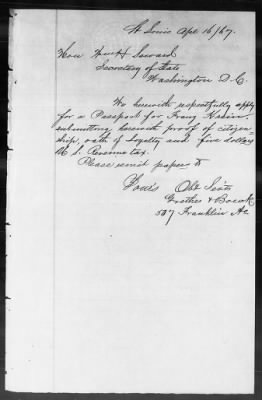 St Louis Apl 16/67.
Hon Wm H Seward
Secretary of State
Washington D.C.
We herewith respectfully apply
for a Passport for Franz
submitting herewith proof of citizen
ship, oath of Loyalty and five dollars
U. S. Revenue tax.
Please remit papers to
Yours Obt Servts
&
507 Franklin Av